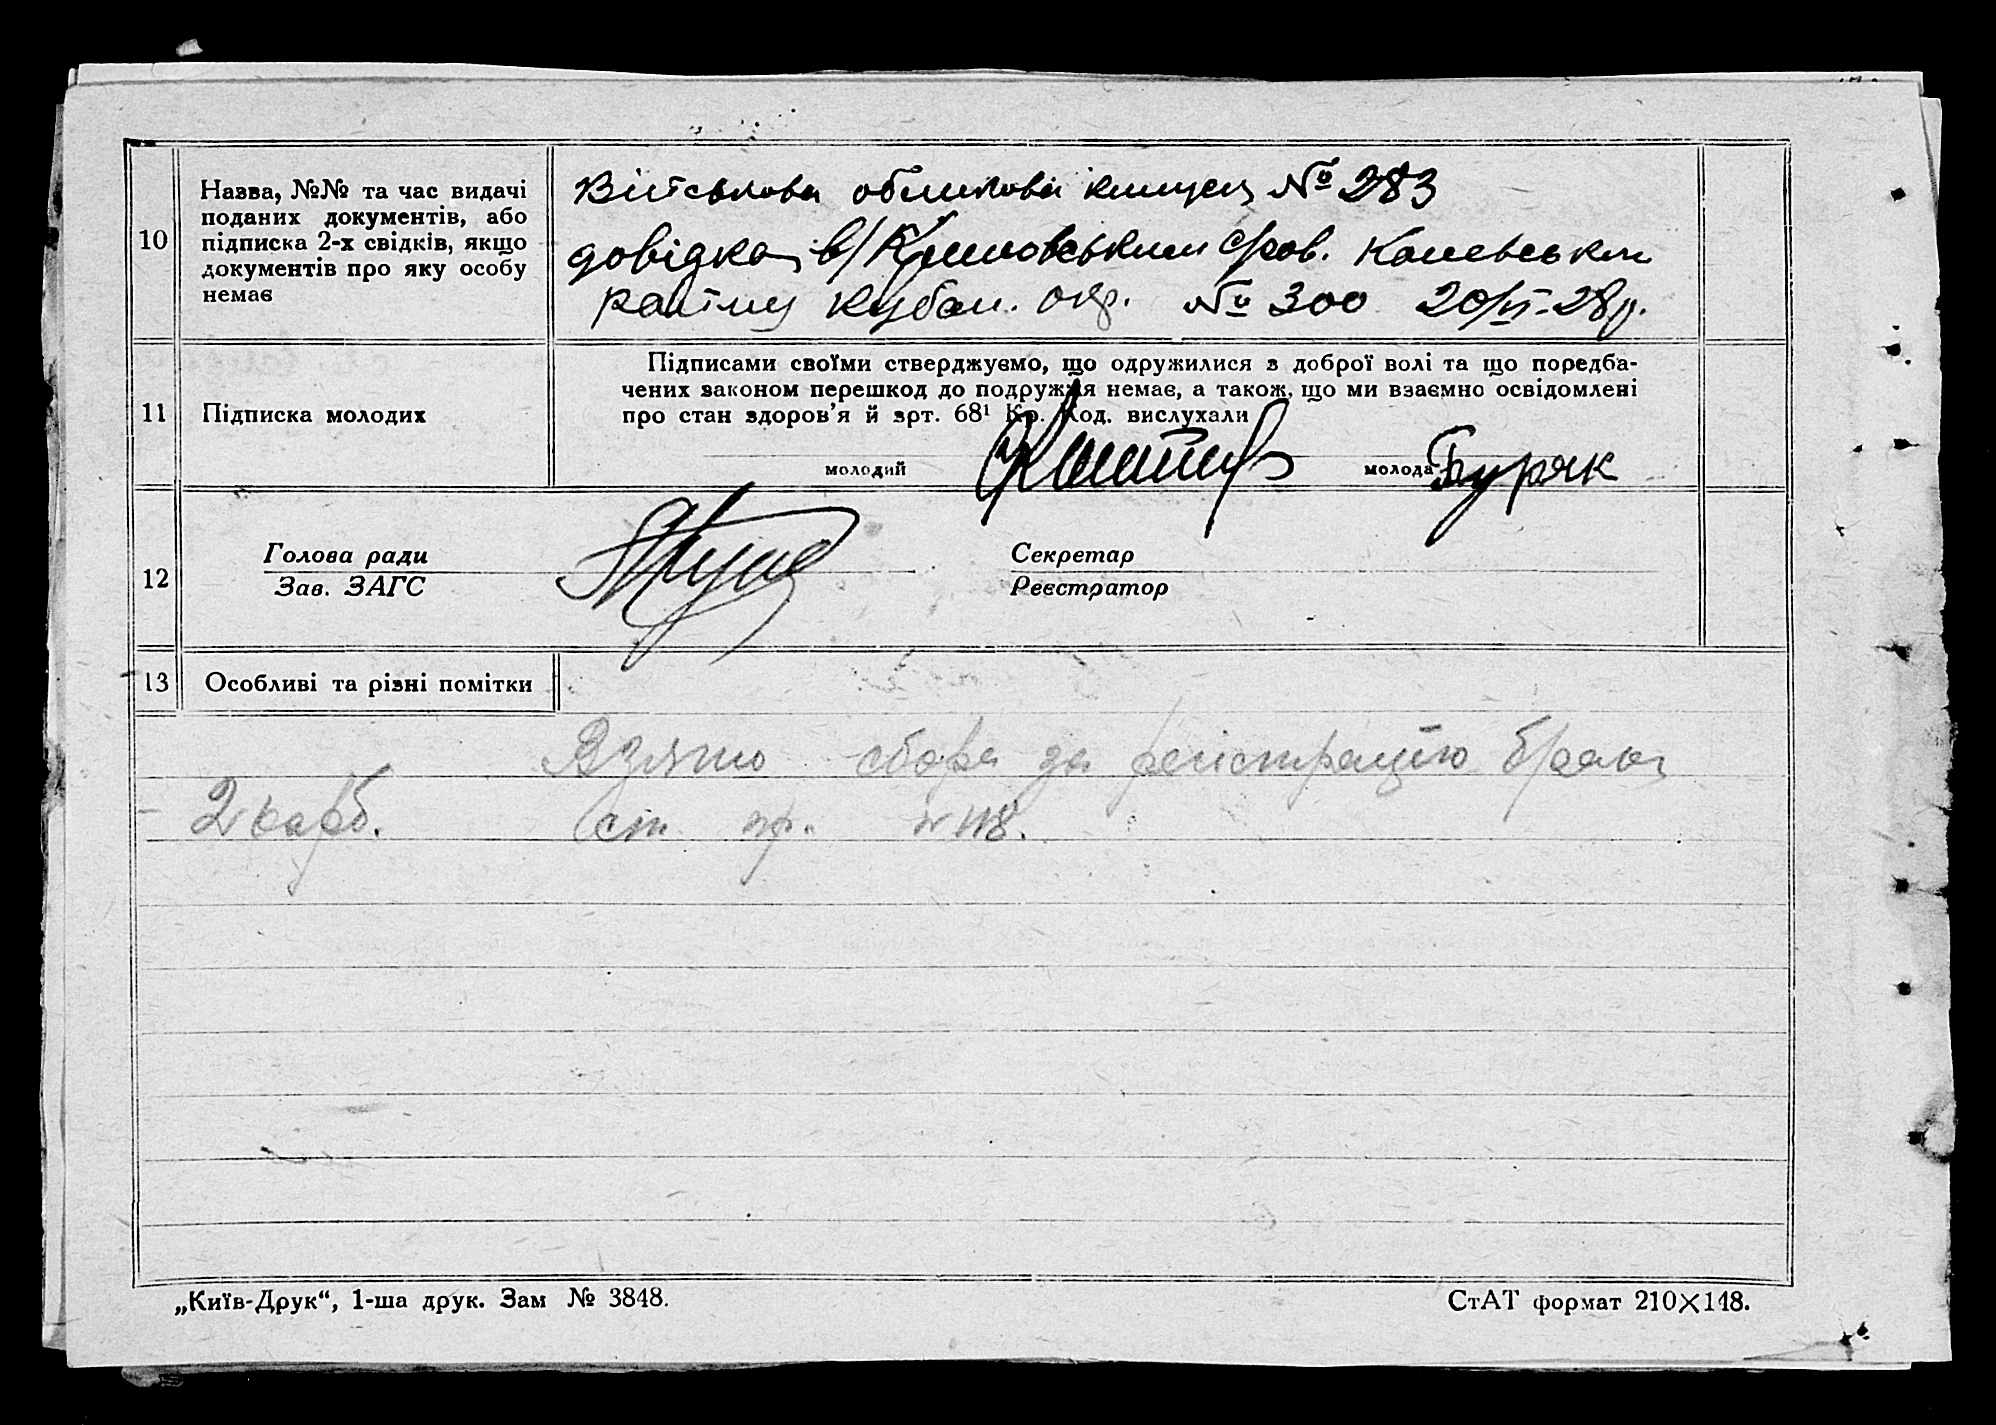 10
Назва, №№ та час видачі
поданих документів, або
підписка 2-х свідків, якщо
документів про яку особу
немає
Військова облікова книжка № 283
довідка в/ сров. Каневським
району Кубан. окр. № 300 20/VI-28р.
11
Підписка молодих
Підписами своїми стверджуємо, що одружилися з доброї волі та що поредба-
чених законом перешкод до подружжя немає, а також, що ми взаємно освідомлені
про стан здоров'я й зрт. 68¹ Кр. Код. вислухали
молодий
молода Буряк
12
Голова ради
Зав. ЗАГС
Секретар
Реєстратор
13
Особливі та різні помітки
Взято сбора за регістрацію брака
2 карб. ст. №118.
„Київ-Друк“, 1-ша друк. Зам № 3848.
СтАТ формат 210×148.